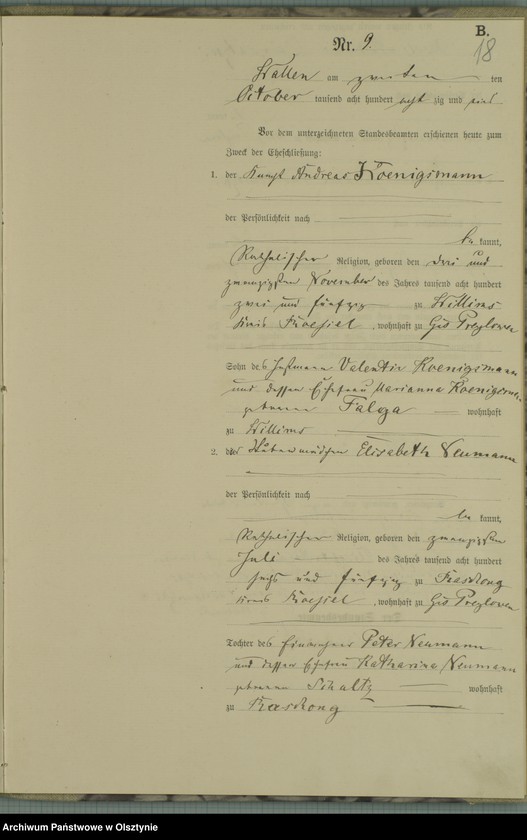 B.
18
Nr. 9.
Wallen am zweiten ten
October tausend acht hundert acht zig und eins
Vor dem unterzeichneten Standesbeamten erschienen heute zum
Zweck der Eheschließung:
1. der Knecht Andreas Koenigsmann
der Persönlichkeit nach
be kannt,
Katholischer Religion, geboren den drei und
zwanzigsten November des Jahres tausend acht hundert
zwei und fünfzig zu Willims
Kreis Roessel, wohnhaft zu Preylowen
Sohn des Valentin Koenigsmann
und dessen Ehefrau Marianna Koenigsmann
geborene Falga wohnhaft
zu Willims
2. Elisabeth Neumann
der Persönlichkeit nach
be kannt,
Katholischer Religion, geboren den zwanzigsten
Juli des Jahres tausend acht hundert
sechs und fünfzig zu Raschong
Kreis Roessel, wohnhaft zu Preylowen
Tochter des Einwohners Peter Neumann
und dessen Ehefrau Katharina Neumann
geborene Schultz wohnhaft
zu Raschong
Archiwum Państwowe w Olsztynie